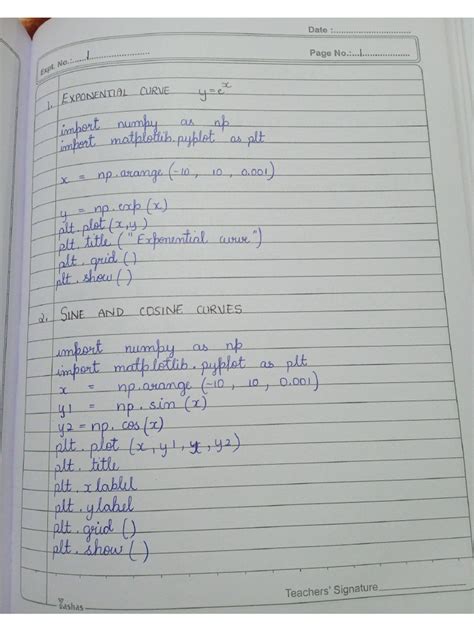 Date :
Expt. No.: 1
Page No.: 1
1. EXPONENTIAL CURVE y=e^x
import numpy as np
import matplotlib.pyplot as plt
x = np.arange (-10, 10, 0.001)
y = np.exp (x)
plt.plot (x,y)
plt.title ("Exponential curve")
plt.grid ()
plt.show ()
2. SINE AND COSINE CURVES
import numpy as np
import matplotlib.pyplot as plt
x = np.arange (-10, 10, 0.001)
y1 = np.sin (x)
y2 = np.cos (x)
plt.plot (x, y1, x, y2)
plt.title
plt.xlablel
plt.ylabel
plt.grid ()
plt.show ()
Teachers' Signature
Yashas